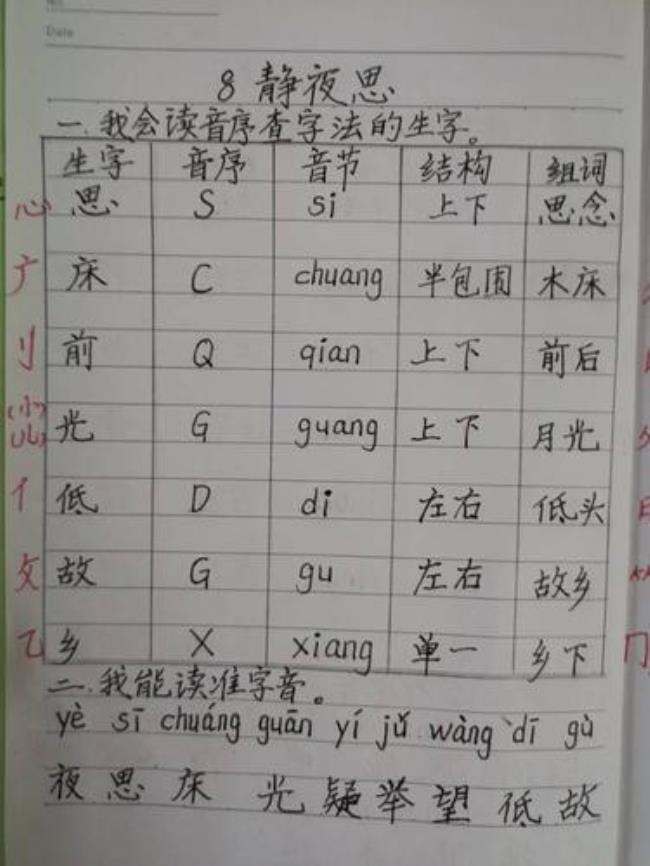 No.
Date
8 静夜思
一.我会读音序查字法的生字。
生字 音序 音节 结构 组词
心 思 S si 上下 思念
广 床 C chuang 半包围 木床
刂 前 Q qian 上下 前后
(小)(儿) 光 G guang 上下 月光
亻 低 D di 左右 低头
攵 故 G gu 左右 故乡
乙 乡 X xiang 单一 乡下
二.我能读准字音。
yè sī chuáng guān yí jǔ wàng dī gù
夜 思 床 光 疑 举 望 低 故